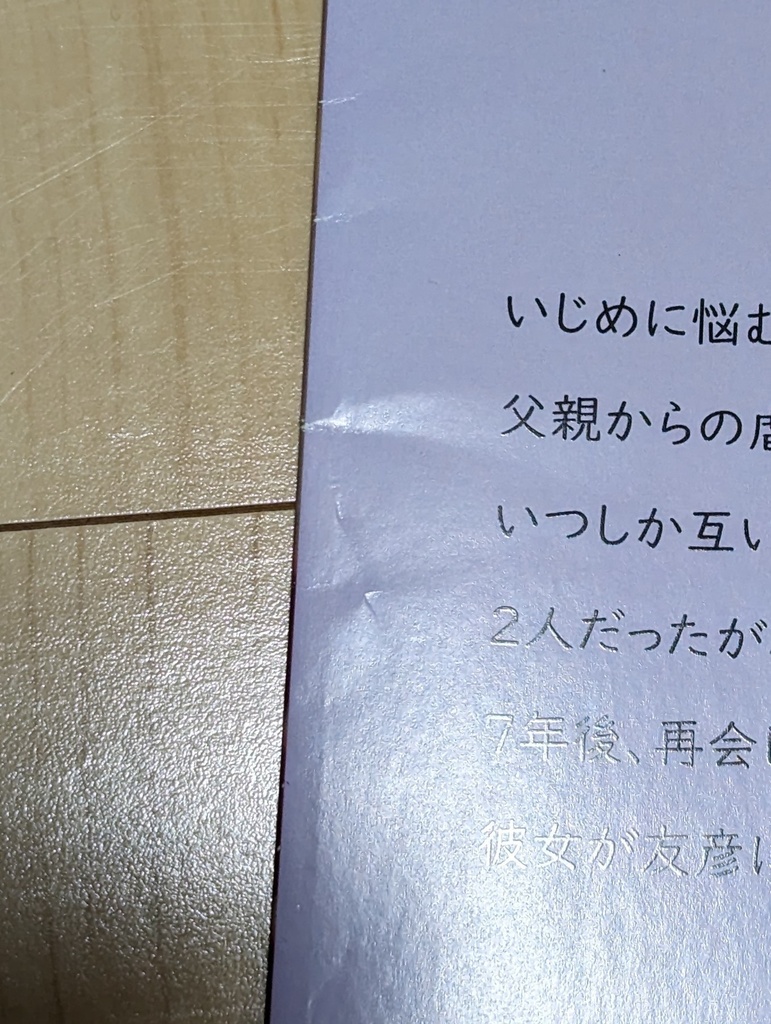 いじめに悩む
父親からの
いつしか互い
2人だったが
7年後、再会し
彼女が友彦に